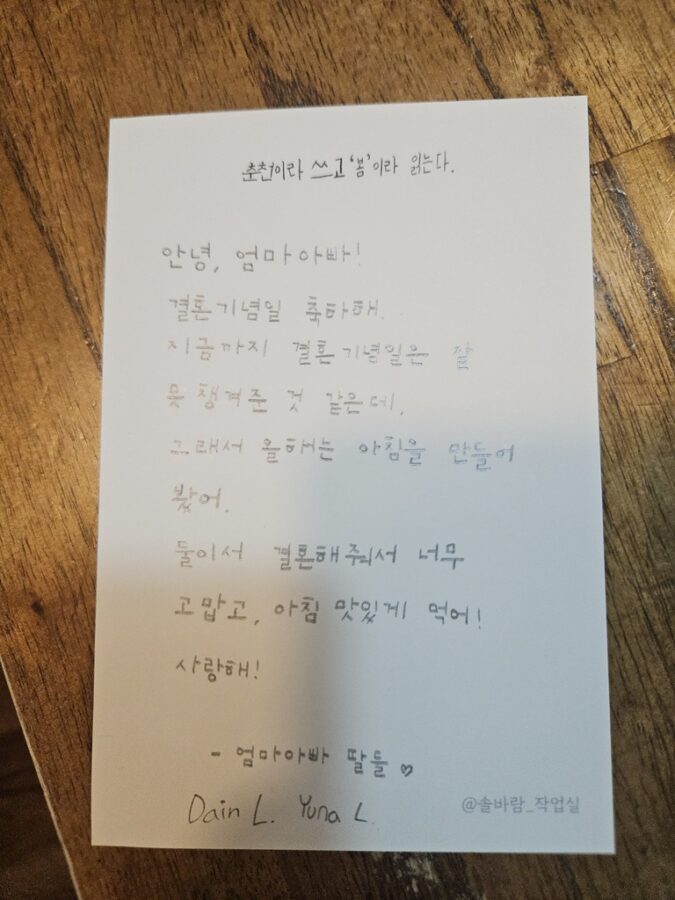 춘천이라 쓰고 '봄'이라 읽는다.
안녕, 엄마아빠!
결혼기념일 축하해.
지금까지 결혼기념일은 잘
못 챙겨준 것 같은데,
그래서 올해는 아침을 만들어
봤어.
둘이서 결혼해줘서 너무
고맙고, 아침 맛있게 먹어!
사랑해!
- 엄마아빠 딸들 ♡
Dain L. Yuna L.
@솔바람_작업실